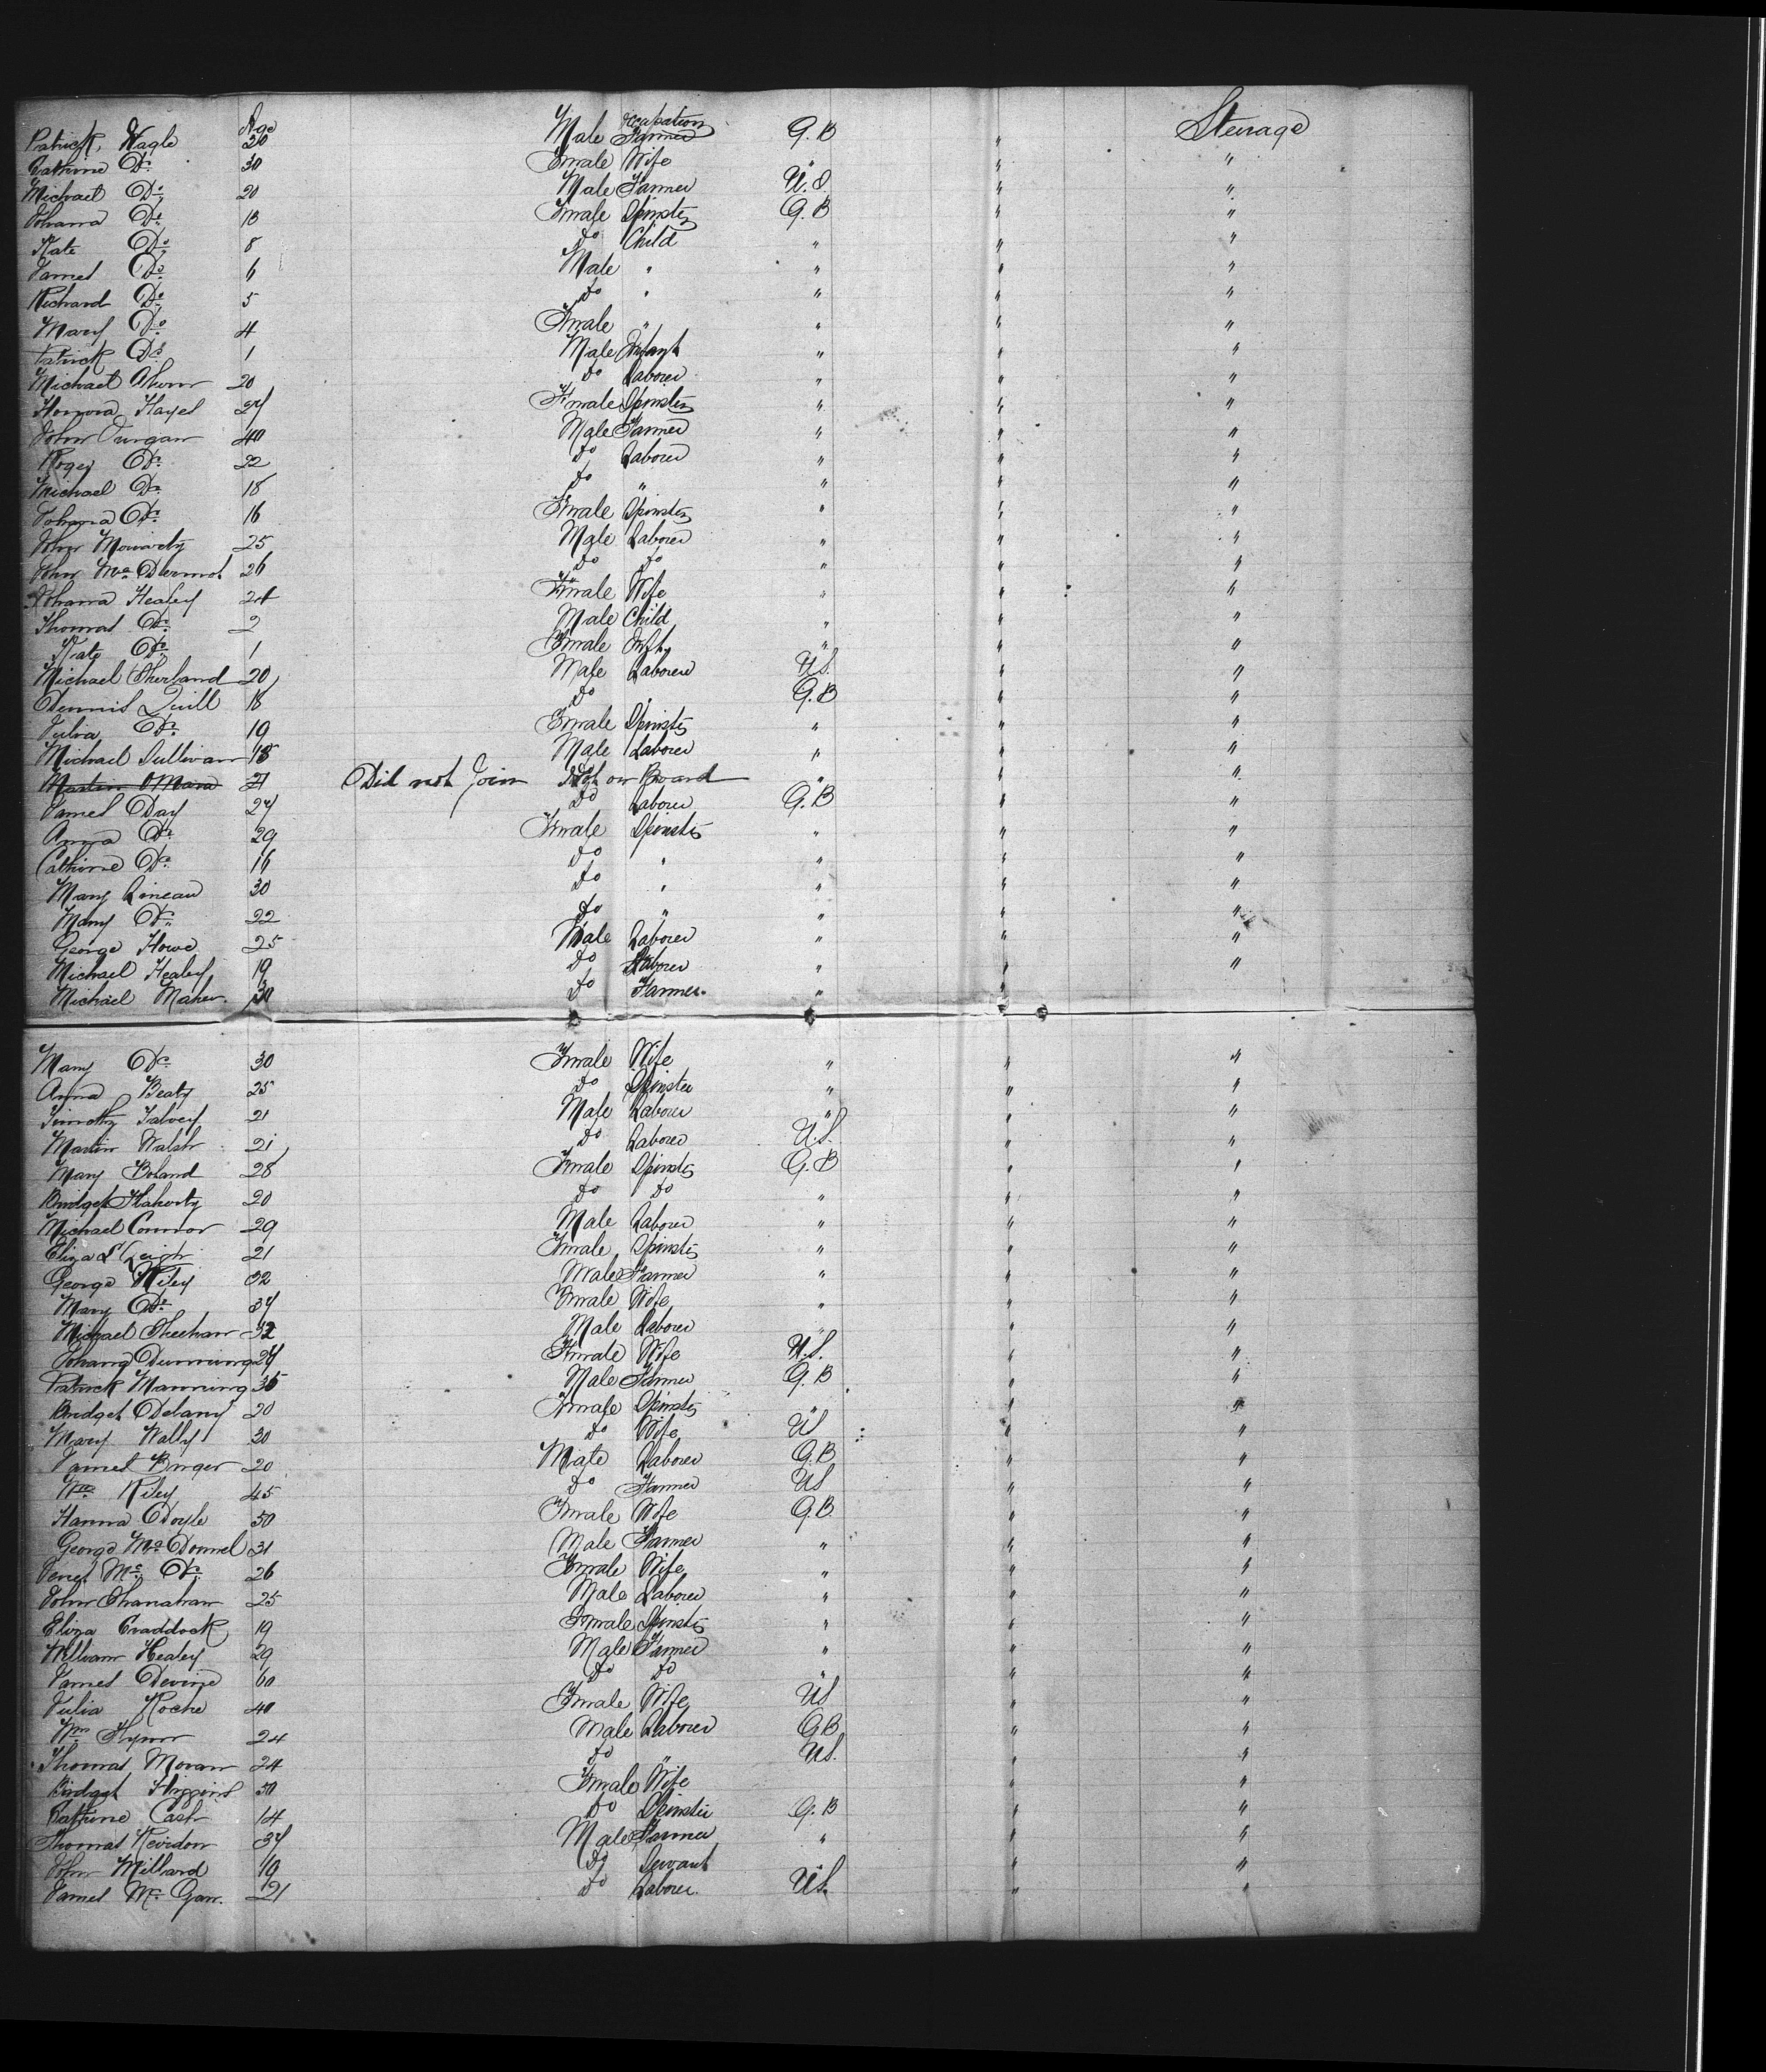 Age Occupation
Patrick Nagle 30 Male Farmer G.B " Steerage
Catherine Do 30 Female Wife " " "
Michael Do 20 Male Farmer U.S. " "
Johana Do 18 Female Spinster G.B " "
Kate Do 8 do Child " " "
James Do 6 Male " " " "
Richard Do 5 do " " " "
Mary Do 4 Female " " " "
Patrick Do 1 Male Infant " " "
Michael Ahern 20 do Laborer " " "
Honora Hayes 27 Female Spinster " " "
John Dungan 40 Male Farmer " " "
Roger Do 22 do Laborer " " "
Michael Do 18 do " " " "
Johana Do 16 Female Spinster " " "
John Moriarty 25 Male Laborer " " "
John McDermot 26 do do " " "
Johana Healey 24 Female Wife " " "
Thomas Do 2 Male Child " " "
Kate Do 1 Female Inft " " "
Michael Sherland 20 Male Laborer U.S. " "
Dennis Quill 18 do " G.B " "
Julia Do 19 Female Spinster " " "
Michael Sullivan 18 Male Laborer " " "
Martin OMara 21 Did not Join Not on Board " " "
James Day 27 do Laborer G.B " "
Anna Do 29 Female Spinster " " "
Cathrine Do 16 do " " " "
Mary Lineau 30 do " " " "
Mary Do 22 do " " " "
George Howe 25 Male Laborer " " "
Michael Healey 19 do Laborer " " "
Michael Maher 30 do Farmer " "
Mary Do 30 Female Wife " " "
Anna Beaty 25 do Spinster " " "
Timothy Falvey 21 Male Laborer " " "
Martin Walsh 21 do Laborer U.S. " "
Mary Boland 28 Female Spinster G.B " "
Bridget Flaherty 20 do do " " "
Michael Connor 29 Male Laborer " " "
Eliza 21 Female Spinster " " "
George Wiley 32 Male Farmer " " "
Mary Do 37 Female Wife " " "
Michael Sheehan 32 Male Laborer " " "
Johana Dunning 27 Female Wife U.S. " "
Patrick Manning 35 Male Farmer G.B " "
Bridget Delany 20 Female Spinster " " "
Mary Wally 30 do Wife US " "
James Burger 20 Male Laborer G.B " "
Wm Riley 45 do Farmer US " "
Hanna Doyle 50 Female Wife G.B " "
George McDonnel 31 Male Farmer " " "
Mc Do 26 Female Wife " " "
John Shanahan 25 Male Laborer " " "
Eliza Craddock 19 Female Spinster " " "
William Healey 29 Male Farmer " " "
James Devine 60 do do " " "
Julia Roche 40 Female Wife US " "
Wm Flynn 24 Male Laborer GB " "
Thomas Moran 24 do " US. " "
Bridget Higgins 50 Female Wife " "
Catrine Cash 14 do Spinster G.B " "
Thomas Reirdon 37 Male Farmer " " "
John Millard 19 do Servant " " "
James McGaw. 21 do Laborer. U.S. " "